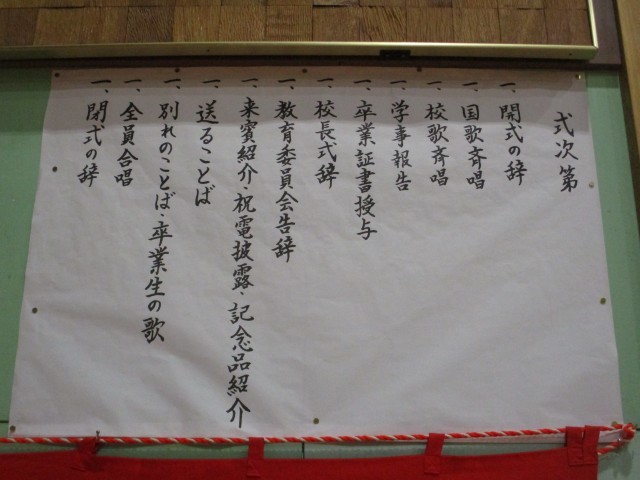 式次第
一、開式の辞
一、国歌斉唱
一、校歌斉唱
一、学事報告
一、卒業証書授与
一、校長式辞
一、教育委員会告辞
一、来賓紹介・祝電披露・記念品紹介
一、送ることば
一、別れのことば・卒業生の歌
一、全員合唱
一、閉式の辞